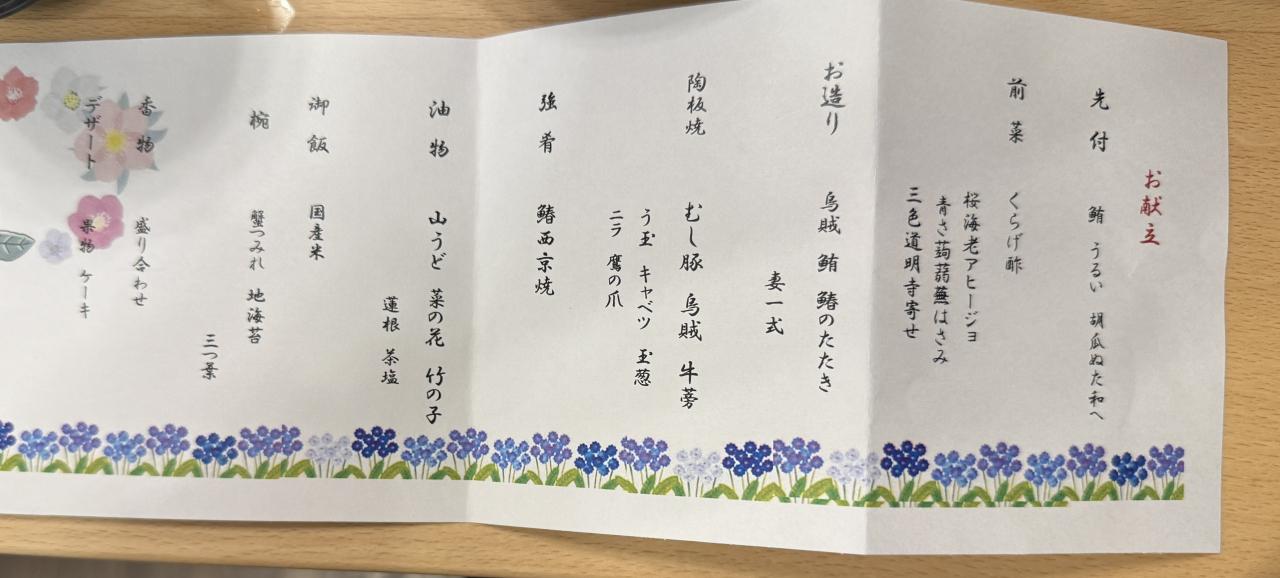 お献立
先付 鮪 うるい 胡瓜ぬた和へ
前菜 くらげ酢
桜海老アヒージョ
青さ蒟蒻蕪はさみ
三色道明寺寄せ
お造り 烏賊 鮪 鰆のたたき
妻一式
陶板焼 むし豚 烏賊 牛蒡
う玉 キャベツ 玉葱
ニラ 鷹の爪
強肴 鰆西京焼
油物 山うど 菜の花 竹の子
蓮根 茶塩
御飯 国産米
椀 蟹つみれ 地海苔
三つ葉
香物 盛り合わせ
デザート 果物 ケーキ